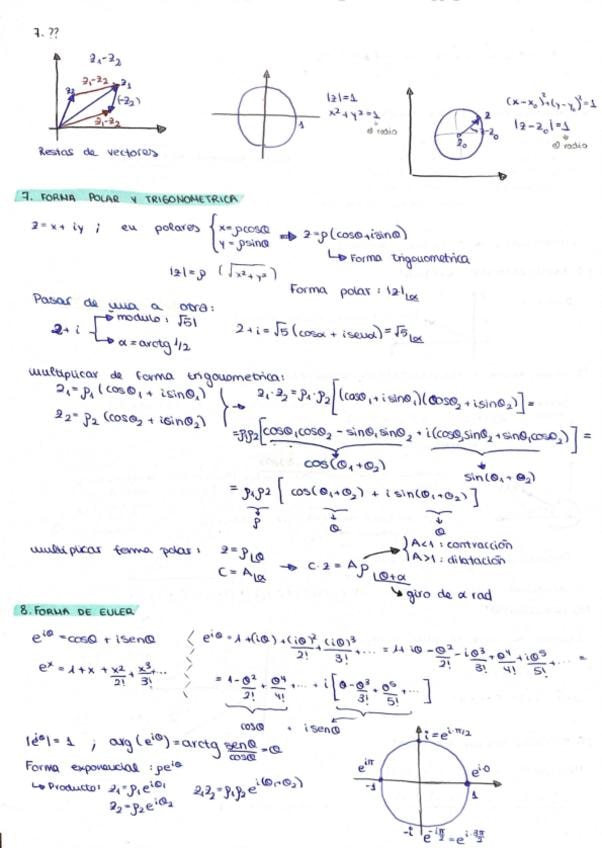 7. ??
z₁-z₂
z₁-z₂
z₂
z₁
(-z₂)
z₁-z₂
Restas de vectores
1
|z|=1
x²+y²=1
radio
z
z-z₀
z₀
(x-x₀)²+(y-y₀)²=1
|z-z₀|=1
radio
7. FORMA POLAR Y TRIGONOMETRICA
z=x+iy ; en polares { x=ρcosθ y=ρsinθ ⇒ z=ρ(cosθ+isinθ)
↳ Forma trigonometrica
|z|=ρ (√x²+y²)
Forma polar : |z|∟α
Pasar de una a otra:
2+i → modulo: √5
→ α=arctg 1/2
2+i=√5(cosα+isenα)=√5∟α
multiplicar de forma trigonometrica:
z₁=ρ₁(cosθ₁+isinθ₁)
z₂=ρ₂(cosθ₂+isinθ₂)
→ z₁·z₂=ρ₁·ρ₂[(cosθ₁+isinθ₁)(cosθ₂+isinθ₂)]=
=ρ₁ρ₂[cosθ₁cosθ₂-sinθ₁sinθ₂+i(cosθ₁sinθ₂+sinθ₁cosθ₂)]=
cos(θ₁+θ₂) sin(θ₁+θ₂)
=ρ₁ρ₂[cos(θ₁+θ₂)+isin(θ₁+θ₂)]
ρ θ θ
multiplicar forma polar: z=ρ∟θ
C=A∟α → C·z=Aρ∟θ+α
A<1: contracción
A>1: dilatación
giro de α rad
8. FORMA DE EULER
e^iθ=cosθ+isenθ
e^x=1+x+x²/2!+x³/3!+...
e^iθ=1+(iθ)+(iθ)²/2!+(iθ)³/3!+...=1+iθ-θ²/2!-iθ³/3!+θ⁴/4!+iθ⁵/5!+...=
=1-θ²/2!+θ⁴/4!+...+i[θ-θ³/3!+θ⁵/5!+...]
cosθ + isenθ
|e^iθ|=1 ; arg(e^iθ)=arctg senθ/cosθ=θ
Forma exponencial: ρe^iθ
↳ Producto: z₁=ρ₁e^iθ₁ z₁z₂=ρ₁ρ₂e^i(θ₁+θ₂)
z₂=ρ₂e^iθ₂
i=e^i·π/2
e^iπ
-1
e^i·0
1
-i
e^-iπ/2=e^i·3π/2